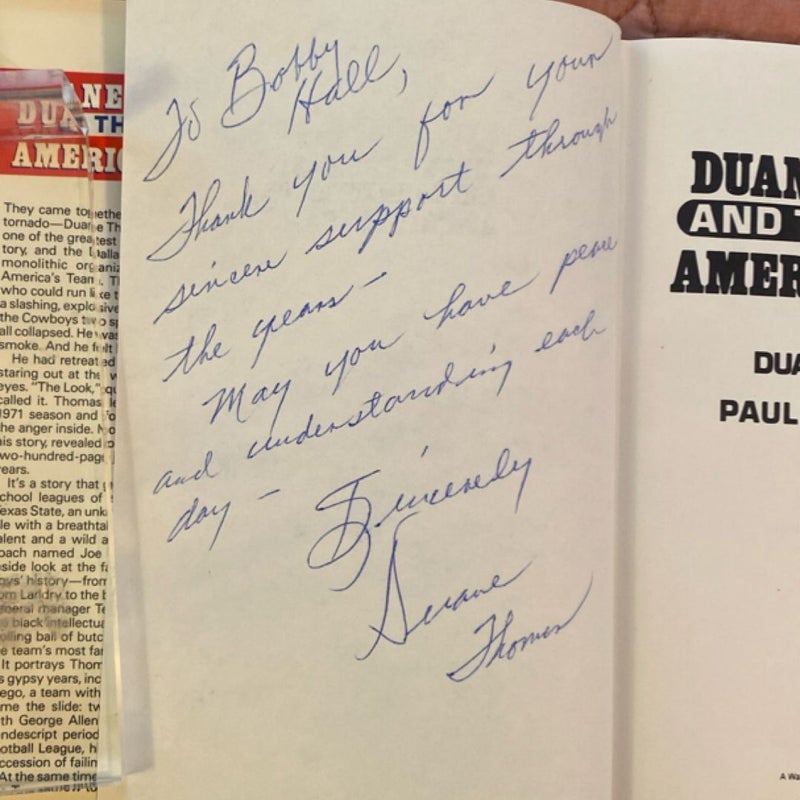 DUANE
DUANE TH
AMERIC
They came togethe
tornado—Duane Th
one of the greatest
tory, and the Dalla
monolithic organi
America's Team. T
who could run like t
a slashing, explosive
the Cowboys two sp
all collapsed. He was
smoke. And he felt
He had retreated
staring out at the w
eyes. "The Look," qu
called it. Thomas le
1971 season and fo
the anger inside. No
his story, revealed
two-hundred-page
years.
It's a story that
chool leagues of
Texas State, an unk
le with a breathtak
alent and a wild a
oach named Joe
side look at the fa
oys' history—from
om Landry to the b
eneral manager Te
black intellectua
olling ball of butc
e team's most fam
It portrays Thom
s gypsy years, inc
ego, a team with
me the slide: tw
th George Allen
ndescript period
ootball League, h
ccession of failin
At the same time
To Bobby
Hall,
Thank you for your
sincere support through
the years –
May you have peace
and understanding each
day – Sincerely
Duane
Thomas
DUAN
AND T
AMER
DUA
PAUL
A Wa